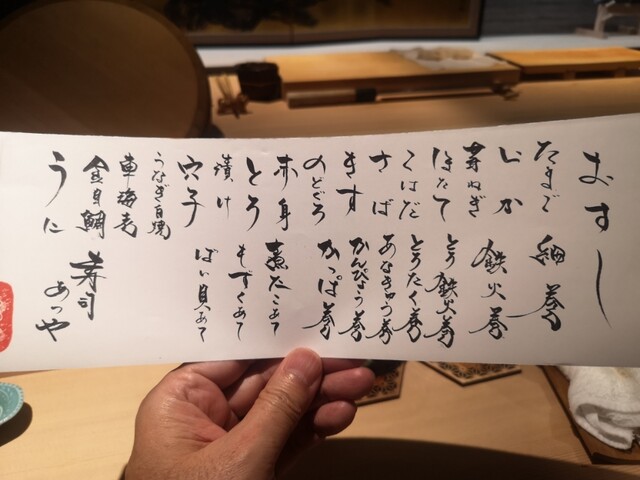 おすし
たまご
いか
芽ねぎ
ほたて
こはだ
さば
きす
のどぐろ
赤身
とろ
漬け
穴子
うなぎ白焼
車海老
金目鯛
うに
細巻
鉄火巻
とろ鉄火巻
とろたく巻
あなきゅう巻
かんぴょう巻
かっぱ巻
煮だこあて
もずくあて
ばい貝あて
寿司
あつや